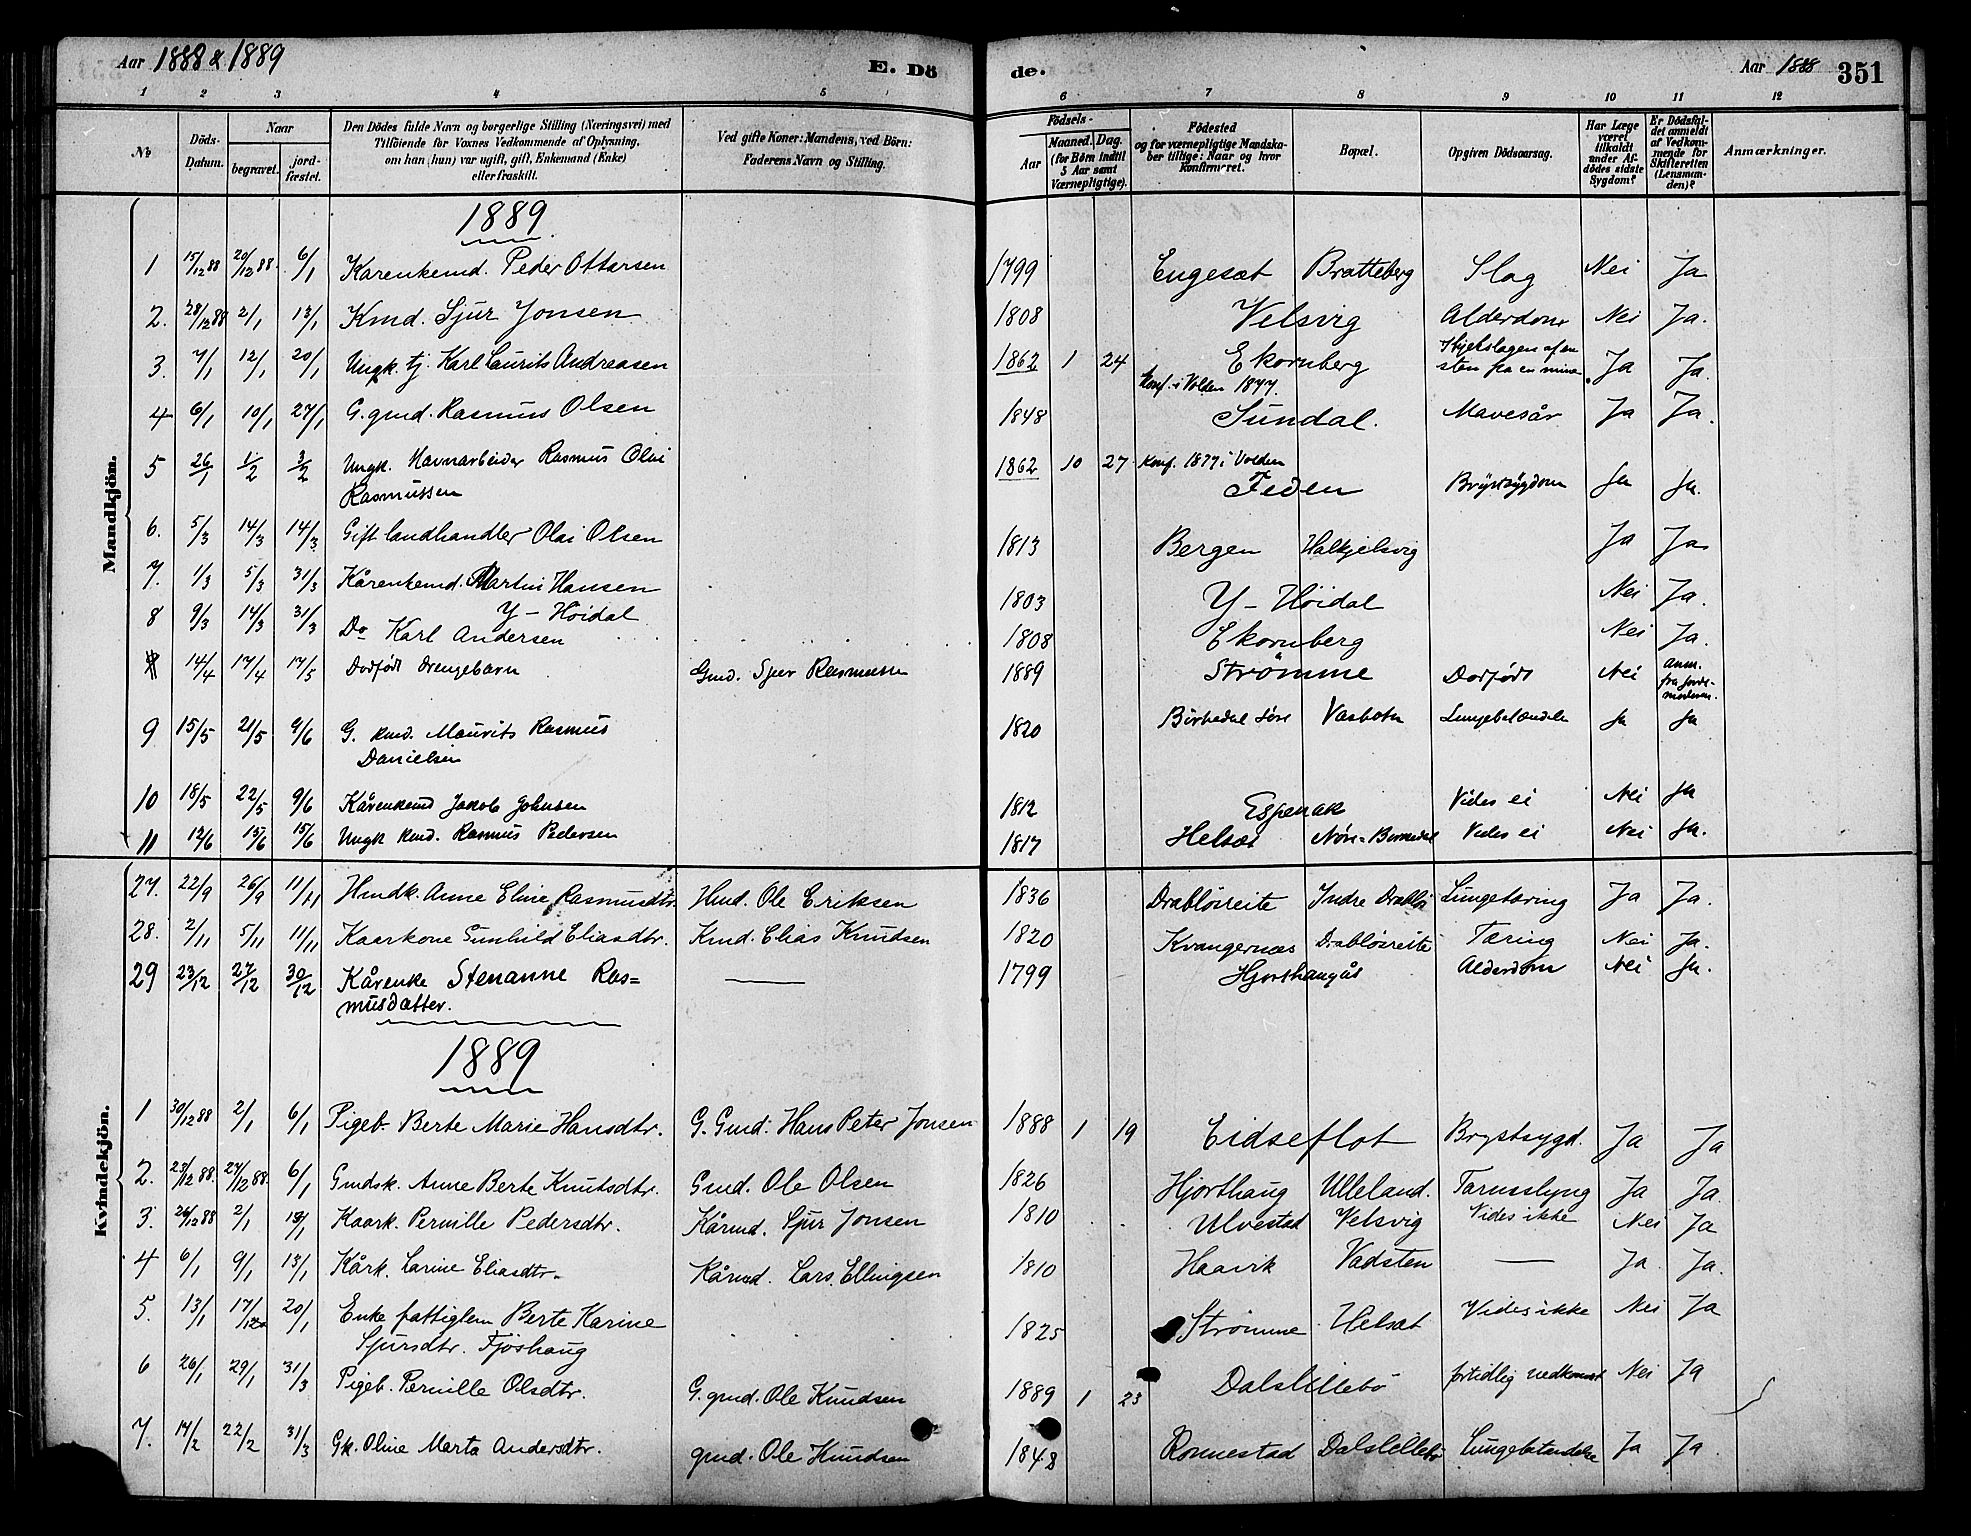 Aar 1888 & 1889
E. Dö
de.
Aar 1888
351
1 2 3 4 5 6 7 8 9 10 11 12
No
Döds-Datum.
Naar
begravet.
jordfæstet.
Den Dödes fulde Navn og borgerlige Stilling (Næringsvei) med
Tilföiende for Voxnes Vedkommende af Oplysning,
om han (hun) var ugift, gift, Enkemand (Enke)
eller fraskilt.
Ved gifte Koner: Mandens, ved Börn:
Faderens Navn og Stilling.
Födsels-
Aar
Maaned. Dag.
(for Börn indtil
5 Aar samt
Værnepligtige).
Födested
og for værnepligtige Mandska-
ber tillige: Naar og hvor
Konfirmeret.
Bopæl.
Opgiven Dödsaarsag.
Har Læge
været
tilkaldt
under Af-
dödes sidste
Sygdom?
Er Dödsfal-
det anmeldt
af Vedkom-
mende for
Skifteretten
(Lensman-
den)?
Anmærkninger.
Mandkjön.
1889
1 15/12 88 20/12 88 6/1 Karenkemd. Peder Ottarsen 1799 Engesæt Bratteberg Slag Nei Ja
2. 28/12 88 2/1 13/1 Kmd. Sjur Jonsen 1808 Velsvig Alderdom Nei Ja.
3. 7/1 12/1 20/1 Ungk. tj. Karl Laurits Andreasen 1862 1 24 Ekornberg Ihjelslagen af en
Konf. i Volden 1877. sten fra en mine Ja Ja.
4 6/1 10/1 27/1 G. gmd. Rasmus Olsen 1848 Sundal. Mavesår Ja Ja.
5 26/1 1/2 3/2 Ungk. Havnarbeider Rasmus Olai 1862 10 27 Konf. 1877 i Volden
Rasmussen Feden Brystsygdom Ja Ja.
6. 5/3 14/3 14/3 Gift landhandler Olai Olsen 1813 Bergen Halkjelsvig Ja Ja
7. 1/3 5/3 31/3 Kårenkemd. Martin Hansen 1803 Y-Höidal Nei Ja.
Y-Höidal
8 9/3 14/3 31/3 Do Karl Andersen 1808 Ekornberg Nei Ja.
14/4 17/4 17/5 Dødfødt Drengebarn Gmd. Sjur Rasmussen 1889 Strömme Dødfødt Nei Anm.
fra Jorde-
moderen.
9 15/5 21/5 9/6 G. kmd. Maurits Rasmus 1820 Birkedal søre Vasbotn Lungebetændelse Ja Ja
Danielsen
10 18/5 22/5 9/6 Kårenkemd Jakob Johnsen 1812 Espenak Vides ei Nei Ja
11 12/6 15/6 15/6 Ungk kmd. Rasmus Pedersen 1817 Helsæt Nøre-Birkedal Vides ei Nei Ja.
Kvindekjön.
27. 22/9 26/9 11/11 Hmdk. Anne Eline Rasmusdtr. Hmd. Ole Eriksen 1836 Drabløsreite Indre Drabløs Lungetæring Ja Ja.
28. 2/11 5/11 11/11 Kaarkone Gunhild Eliasdtr. Kmd. Elias Knudsen 1820 Kvangernæs Drabløsreite Tæring Nei Ja.
29 23/12 27/12 30/12 Kårenke Stenanne Ras= — 1799 Hjorthaugås Alderdom Nei Ja.
musdatter.
1889
1 30/12 88 2/1 6/1 Pigeb. Berte Marie Hansdtr. G. Gmd. Hans Peter Jonsen 1888 1 19 Eidseflot Brystsygd. Ja Ja
2. 23/12 88. 27/12 88. 6/1 Gmdsk. Anne Berte Knutsdtr. Gmd. Ole Olsen 1826 Hjorthaug Ulleland. Tarmslyng Ja Ja.
3. 26/12 88 2/1 13/1 Kaark. Pernille Pedersdtr. Kårmd. Sjur Jonsen 1810 Ulvestad Velsvig Vides ikke Nei Ja
4 6/1 9/1 13/1 Kårk. Larine Eliasdtr. Kårmd. Lars Ellingsen 1810 Haavik Vadsten — Ja Ja.
5. 13/1 17/1 20/1 Enke fattiglem Berte Karine 1825 Strömme Helsæt Vides ikke Nei Ja
Sjursdtr. Fjöshaug
6 26/1 29/1 31/3 Pigeb. Pernille Olsdtr. G. gmd. Ole Knudsen 1889 1 23 Dalslillebö fortidlig nedkomst Nei Ja
7. 14/2 22/2 31/3 Gk. Oline Marta Andersdtr. gmd. Ole Knudsen 1848 Ronnestad Dalslillebö Lungebetændelse Ja Ja.